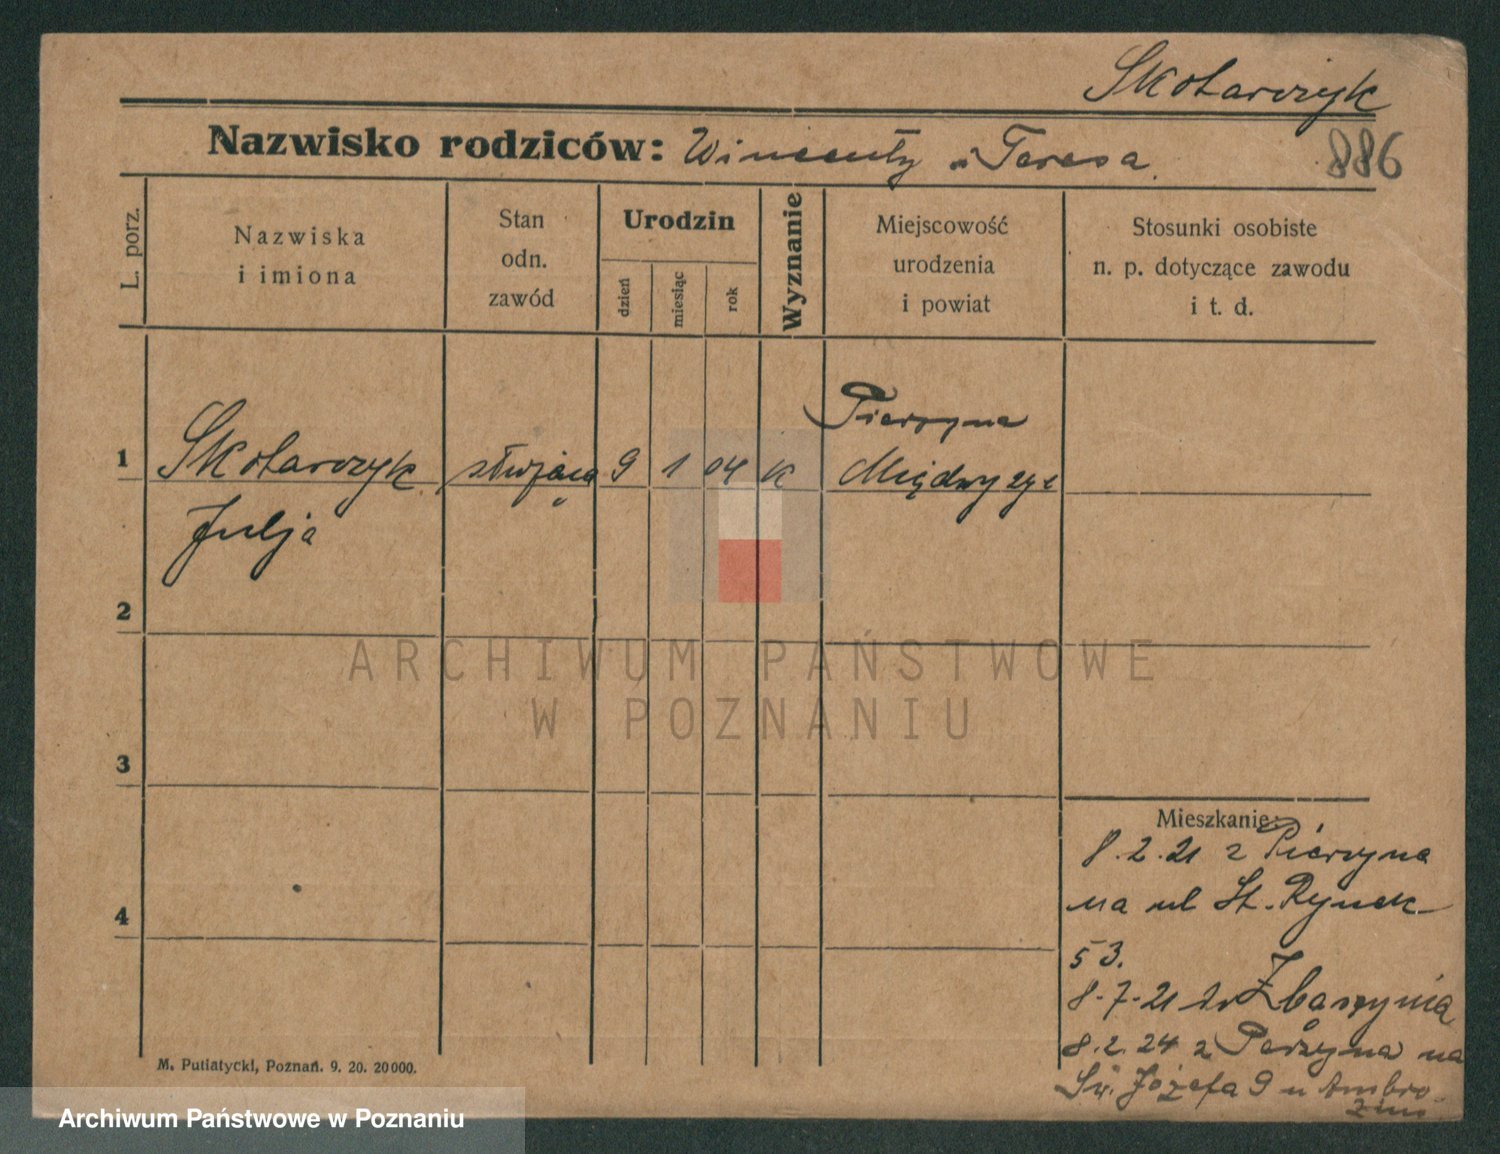 Skotarczyk
Nazwisko rodziców: Wincenty i Teresa.
886
L. porz.
Nazwiska
i imiona
Stan
odn.
zawód
Urodzin
dzień
miesiąc
rok
Wyznanie
Miejscowość
urodzenia
i powiat
Stosunki osobiste
n. p. dotyczące zawodu
i t. d.
Pierzyna
1 Skotarczyk służąca 9 1 04 k Międzyrzyc
Julja
2
ARCHIWUM PAŃSTWOWE
W POZNANIU
3
Mieszkanie:
8.2.21 z Pierzyna
na ul St. Rynek
4
53.
8-7-21 do Zbąszynia
8.2.24 z Perzyna na
Św. Józefa 9 u Ambro
M. Putiatycki, Poznań. 9. 20. 20000.
Archiwum Państwowe w Poznaniu